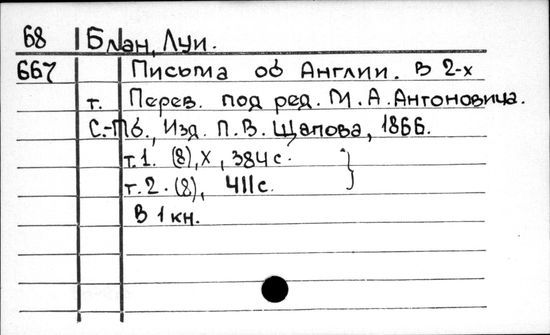 68 Блан, Луи.
667 Письма об Англии. В 2-х
т. Перев. под ред. М.А. Антоновича.
С.-Пб., Изд. П.В. Щапова, 1866.
т.1. (8), X, 384 с.
т.2. (8), 411 с.
В 1 кн.